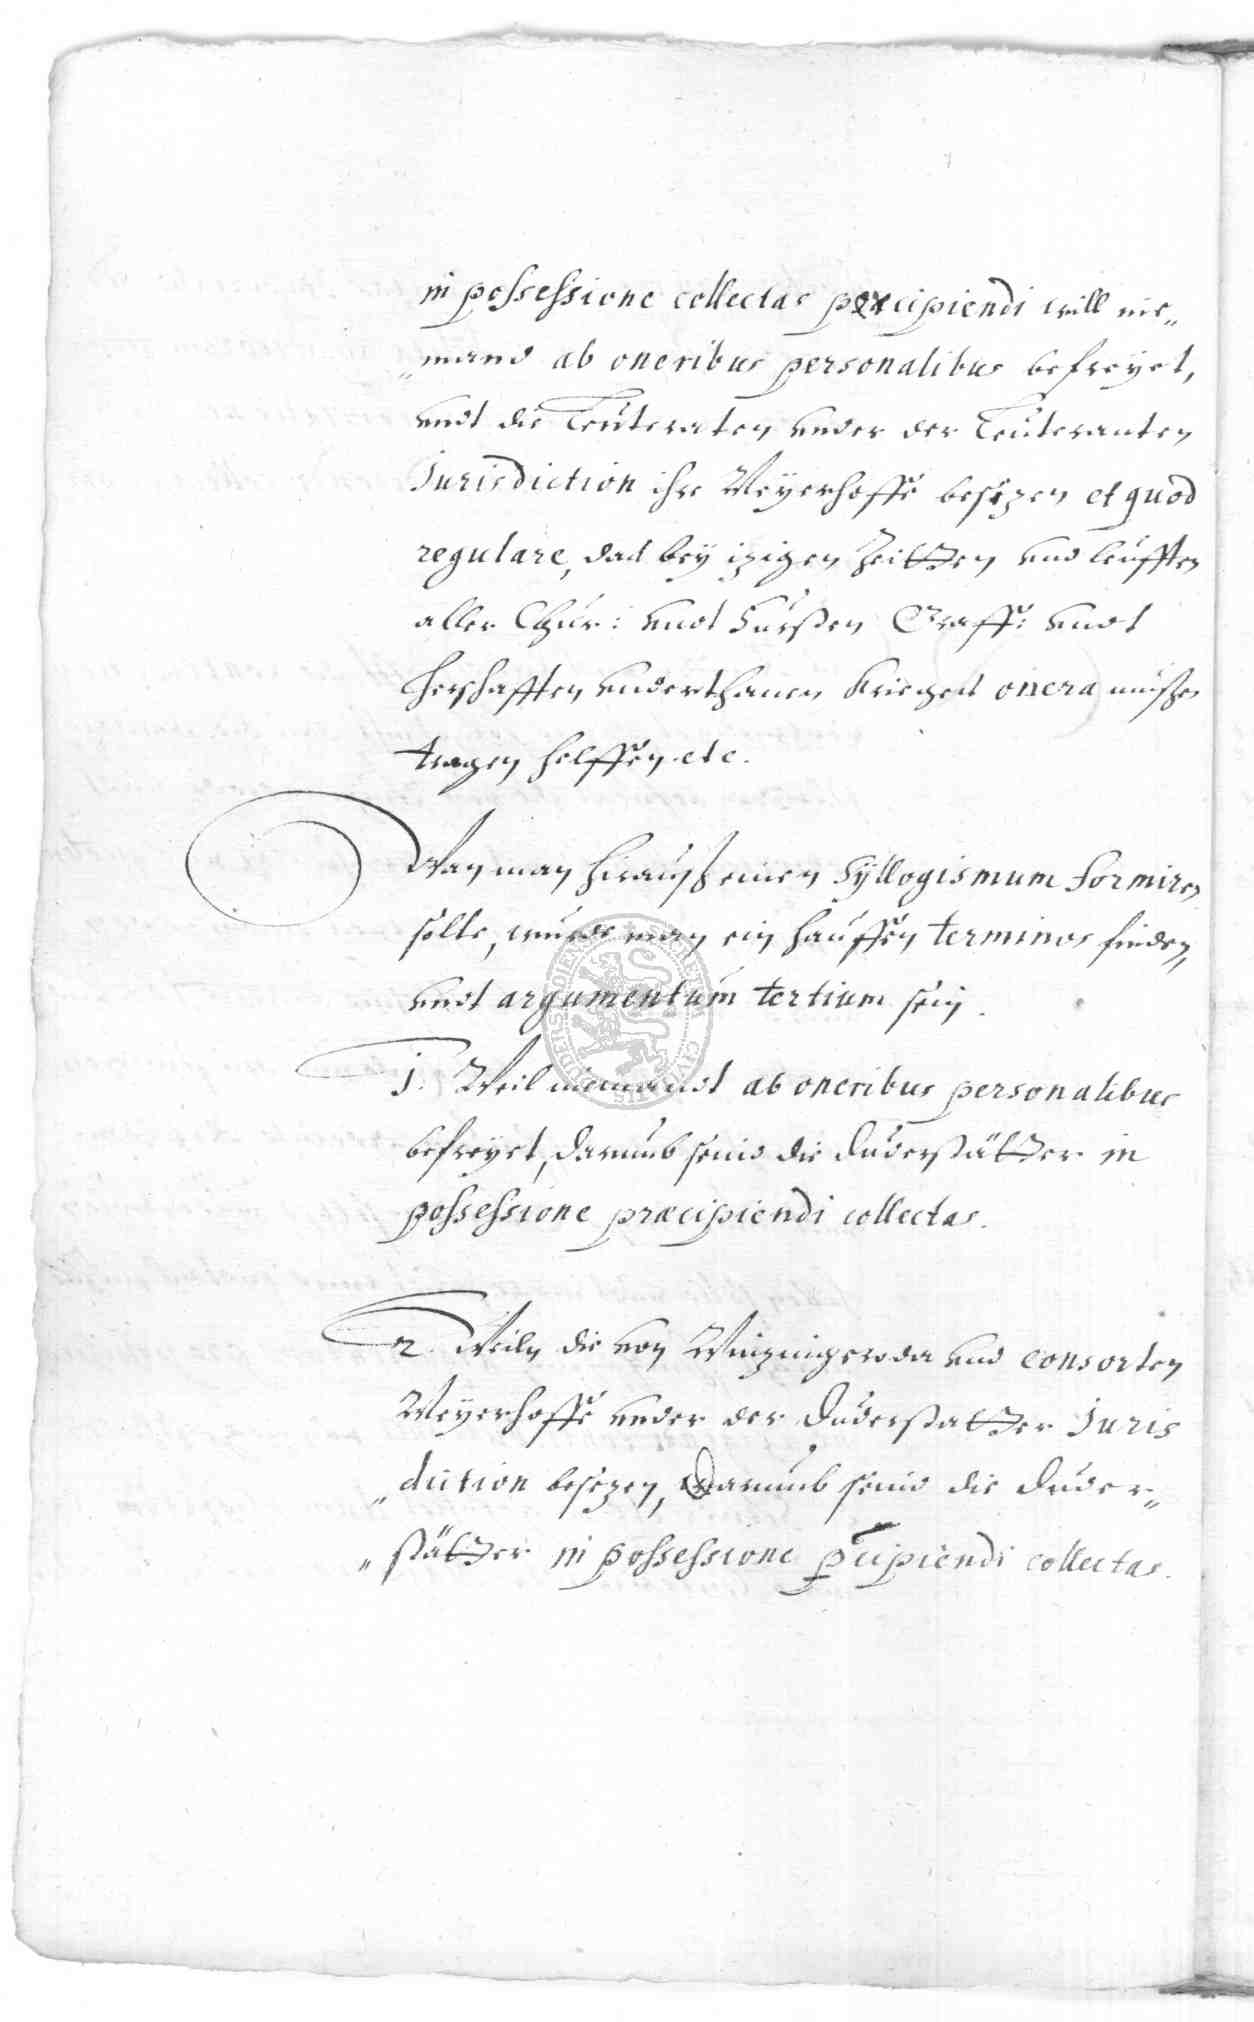 in possessione collectas præcipiendi will nie„
„mand ab oneribus personalibus befreyet,
undt die Leuteraten under der Leuteranten
Jurisdiction ihre Meyerhoffe besizen et quod
regulare, das bey izigen Zeitten und leufften
aller Chur: undt Fursten Graff: undt
herschafften underthanen Krieges onera mußen
tragen helffen etc.
Wan man hieraus einen Syllogismum formiren
solte, wurde man ein hauffen terminos finden,
undt argumentum tertium sein.
1. Weil niemandt ab oneribus personalibus
befreyet, darumb seind die Duderstätter in
possessione præcipiendi collectas.
2. Weiln die von Winzingeroda und consorten
Meyerhoffe under der Duderstatter Juris
„diction besizen, Darumb seind die Duder„
„stätter in possessione p̄cipiendi collectas.
SIGILLUM CIVITATIS DUDERSTADIENSIS